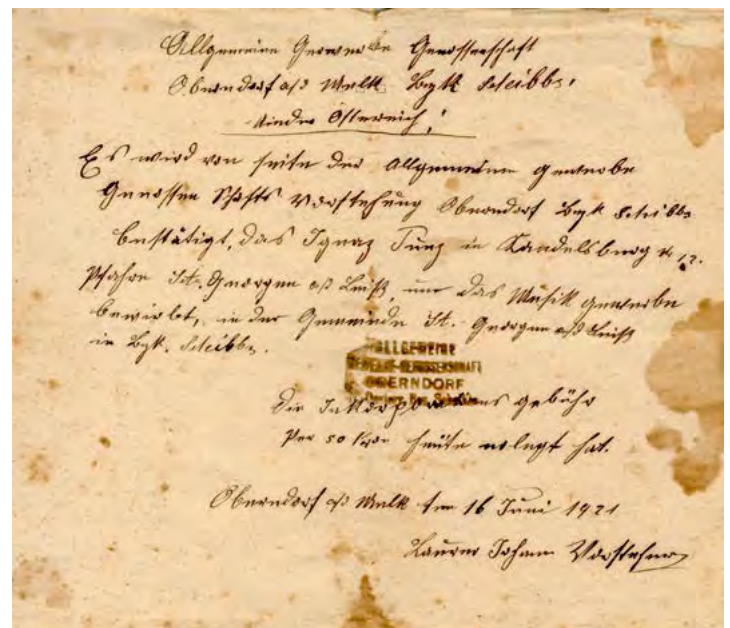 Allgemeine Gewerbe Genossenschaft
Oberndorf a/d Melk Bezk Scheibbs,
Nieder Österreich!
Es wird von seite der Allgemeinen gewerbe
Genossen Schafts Vorstehung Oberndorf Bezk Scheibbs
bestätigt, das Ignaz in Kandelsberg N 12.
Pfahre St. Georgen a/d Leiß, um das Musik gewerbe
bewirbt, in der Gemeinde St. Georgen a/d Leiß
in Bezk. Scheibbs.
ALLGEMEINE
GEWERBE-GENOSSENSCHAFT
OBERNDORF
Die Inkorporations gebühr
per 50 Kron heute erlegt hat.
Oberndorf a/d Melk den 16 Juni 1921
Johann Vorsteher